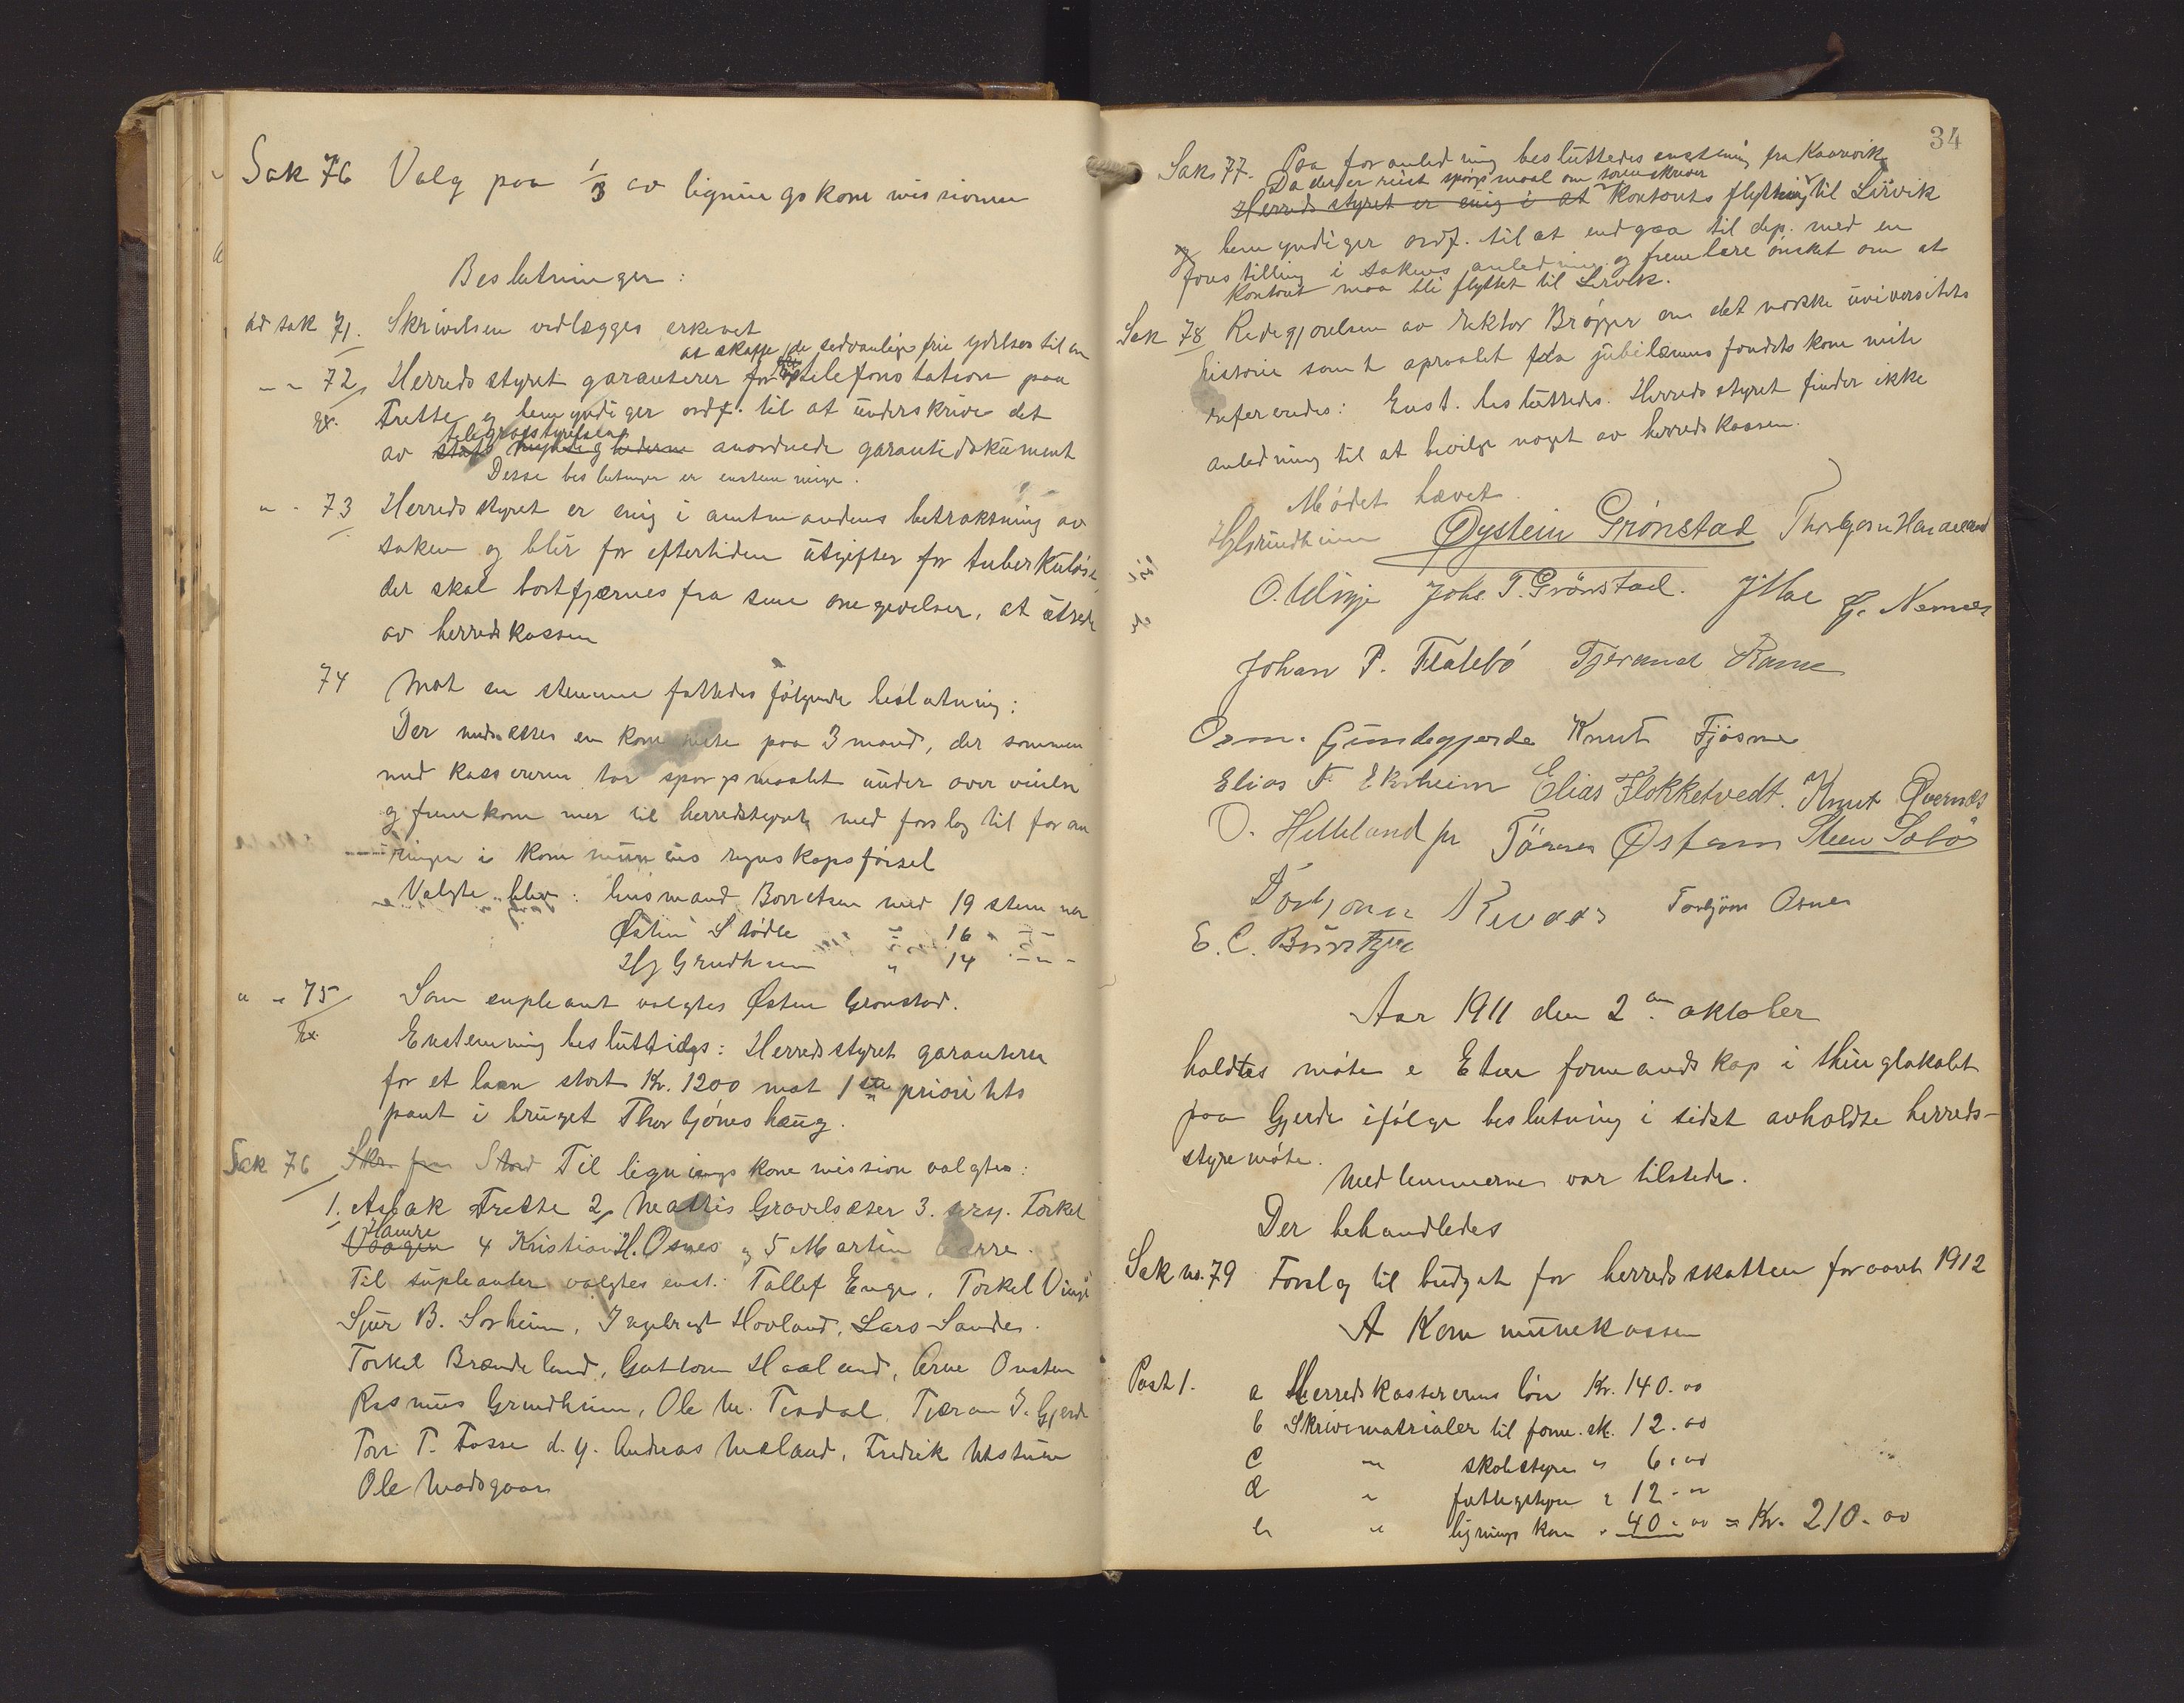 Sak 76 Valg paa 1/3 av ligningskommisionen
Beslutninger:
ad sak 71. Skrivelsen vedlægges arkivet
at skaffe de sedvanlige frie ydelser til en
" - 72, Herredsstyret garanterer for telefonstation paa
ex. Frette og bemyndiger ordf. til at underskrive det
telegrafstyrelsen
av stats myndigheterne anordnede garantidokument
Desse beslutninger er enstemmige.
" - 73 Herredsstyret er enig i amtmandens betraktning av
saken og blir for eftertiden utgifter for tuberkuløse
der skal bortfjærnes fra sine omgivelser, at utrede
av herredskassen
74 Mot en stemme fattedes følgende beslutning:
Der nedsættes en kommite paa 3 mand, der sammen
med kassereren tar spørgsmaalet under overveielse
og fremkommer til herredsstyret med forslag til foran
-ringer i kommunens regnskapsførsel
Valgte blev: lensmand Borretsen med 19 stemmer
Østen Stødle " 16 " -
H J Grindheim " 14 - " -
" - 75 Som supleant valgtes Østen Grønstad.
Ex. Enstemmig besluttedes: Herredsstyret garanterer
for et laan stort Kr. 1200 mot 1ste prioritets
pant i bruget Thorbjørnshaug.
Sak 76 Skr. fra Stord Til ligningskommission valgtes:
1. Aslak Frette 2, Mattis Gravelsæter 3. Torkel
Hamre
Vaagen 4 Kristian H. Osnes og 5 Martin Bærre.
Til supleanter valgtes enst.: Tallef Enge, Torkel Vinje
Sjur B. Sørheim, Ingebregt Hovland, Lars Sande.
Torkel Brændeland, Guttorm Haaland, Arne Onsten
Rasmus Grindheim, Ole M. Tesdal, Tjeran J. Gjerde
Torr T. Fosse d.y. Andreas Mæland, Fredrik
Ole
34
Sak 77. Paa foranledning besluttedes enstemmig fra Kaarvik
Da der er reist spørgsmaal om sorenskriver
Herredsstyret er enig i at kontorets flytning til Lervik
og bemyndiger ordf. til at indgaa til dep. med en
forestilling i sakens anledning og fremføre ønsket om at
kontoret maa bli flyttet til Lervik.
Sak 78 Redegjørelsen av rektor Brøgger om det norske universitets
historie samt opraabet fra jubilæumsfondets komite
refereredes: Enst. besluttedes. Herredsstyret finder ikke
anledning til at bevilge noget av herredskassen.
Mødet hævet.
HJGrindheim Øystein Grønstad Thorbjørn Haraland
O. Vinje Johs. T. Grønstad. J Moe Nernæs
Johan P. Flatebø Tjerand Ramn
Osm. Gundegjerde Knut Fjøsne
Elias F Ekrheim Elias Flokketvedt. Knut Qvernæs
O. Helleland jr Tønnes Østrem Steen Sæbø
Torbjørn Kevaas Torbjørn Osnes
E. C. Børretzen
Aar 1911 den 2den oktober
holdtes møte i Etne formandskap i thinglokalet
paa Gjerde ifølge beslutning i sidst avholdte herreds-
styremøte.
Medlemmerne var tilstede.
Der behandledes
Sak no. 79 Forslag til budget for herredsskatten for aaret 1912
A Kommunekassen
Post 1. a Herredskassererens løn Kr. 140.00
b Skrivematrialer til form. sk. 12.00
c " skolestyre " 6.00
d " fattigstyre " 12.00
e " lignings kom " 40.00 = Kr. 210.00